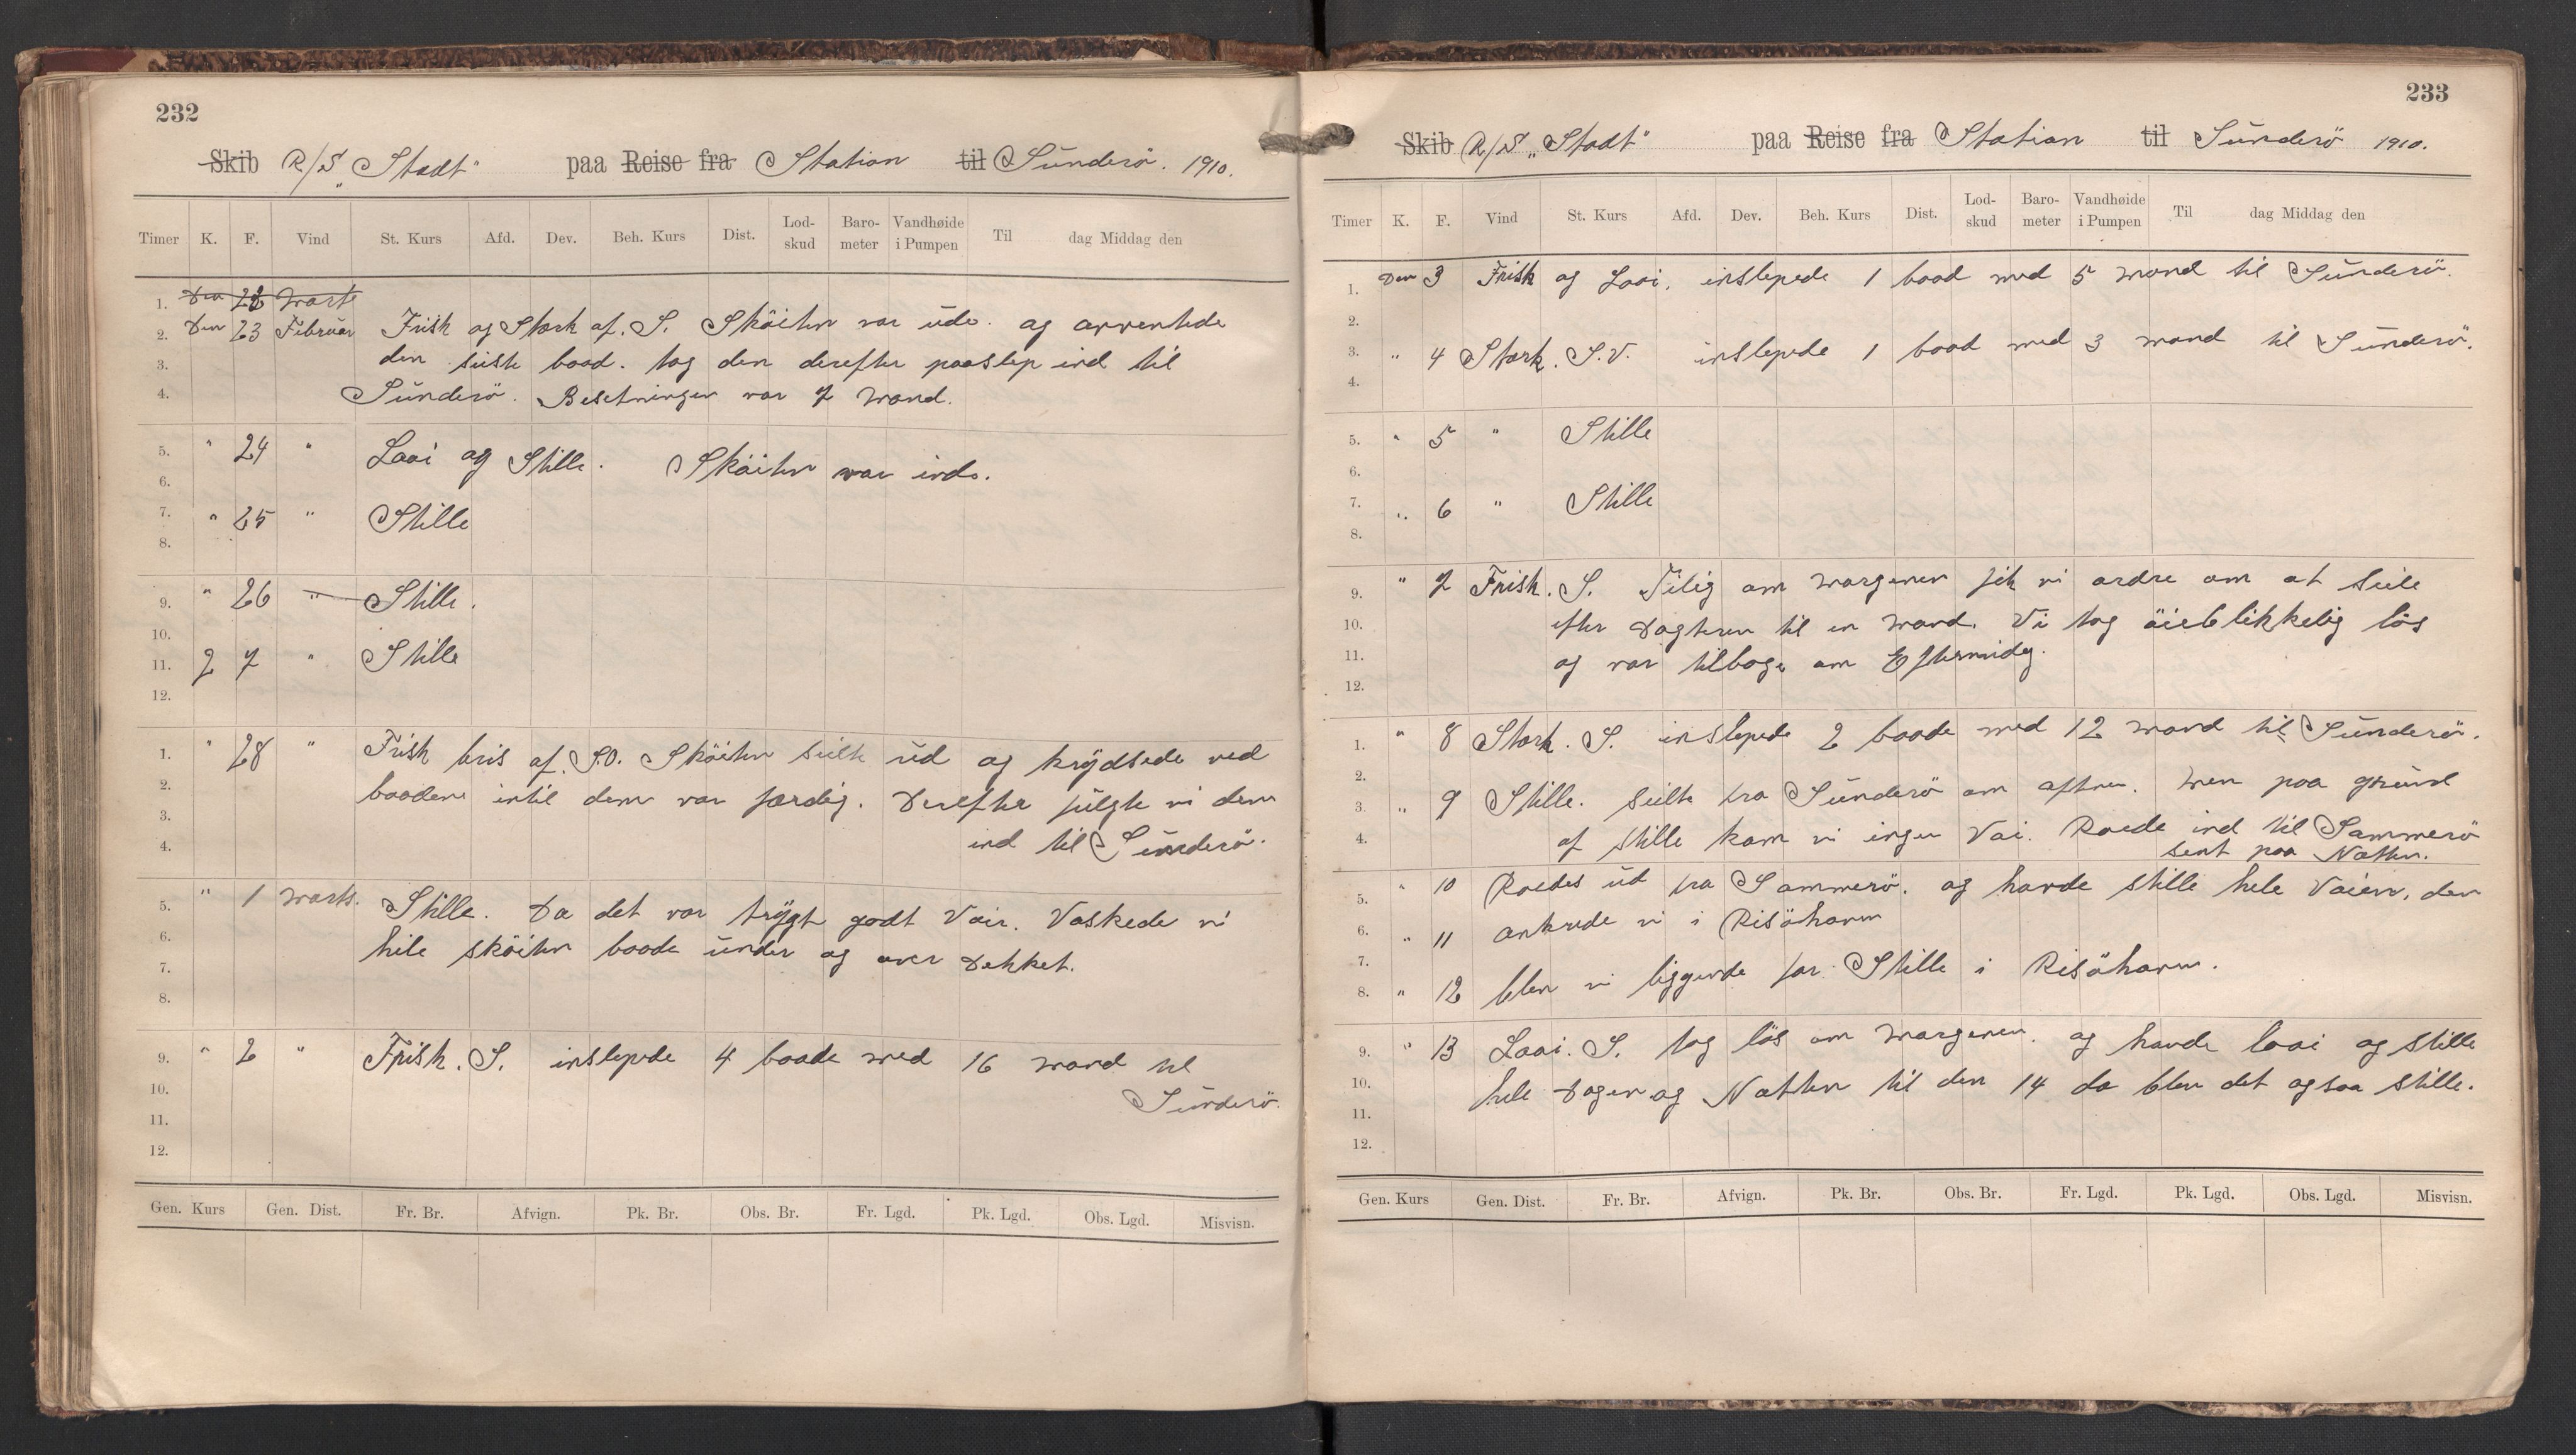 232
Skib R/S „Stadt" paa Reise fra Station til Sunderö. 1910.
Timer K. F. Vind St. Kurs Afd. Dev. Beh. Kurs Dist. Lod-skud Baro-meter Vandhøide i Pumpen Til dag Middag den
1. Den 28 Marts
2. Den 23 Februar Frisk og Stærk af. S. Sköiten var ude. og avventede
3. den siste baad. tog den derefter paaslep ind til
4. Sunderö. Besetningen var 7 Mand.
5. " 24 " Laai og Stille. Sköiten var inde.
6.
7. " 25 " Stille
8.
9. " 26 " Stille.
10.
11. 2 7 " Stille
12.
1. " 28 " Frisk bris af. S.O. Sköiten seilte ud og krydsede ved
2. baadene intil dem var færdig. Derefter fulgte vi dem
3.
4. ind til Sunderö.
5. " 1 Marts. Stille. Da det var trygt godt Vair. Vaskede vi
6. hele sköiten baade under og over Dekket.
7.
8.
9. " 2 " Frisk. S. inslepede 4 baade med 16 mand til
10. Sunderö.
11.
12.
Gen. Kurs Gen. Dist. Fr. Br. Afvign. Pk. Br. Obs. Br. Fr. Lgd. Pk. Lgd. Obs. Lgd. Misvisn.
233
Skib R/S „Stadt" paa Reise fra Station til Sunderö 1910.
Timer K. F. Vind St. Kurs Afd. Dev. Beh. Kurs Dist. Lod-skud Baro-meter Vandhøide i Pumpen Til dag Middag den
1. Den 3 Frisk og Laai. inslepede 1 baad med 5 mand til Sunderö.
2.
3. " 4 Stærk. S.V. inslepede 1 baad med 3 mand til Sunderö.
4.
5. " 5 " Stille
6.
7. " 6 " Stille
8.
9. " 7 Frisk. S. Tilig om morgenen fik vi ordre om at seile
10. efter Dogteren til en Mand. Vi tog öieblikkelig lös
11. og var tilbage om Eftermidg.
12.
1. " 8 Stærk. S. inslepede 2 baade med 12 mand til Sunderö.
2.
3. " 9 Stille. seilte fra Sunderö om aftnen. men paa grund
4. af stille kom vi ingen Vai. Roede ind til Sammerö
sent paa Natten.
5. " 10 Roedes ud fra Sammerö. og havde stille hele Vaien, den
6. " 11 ankrede vi i Risöhavn
7.
8. " 12 blev vi liggende for Stille i Risöhavn.
9. " 13 Laai. S. tog lös om morgenen. og havde laai og stille
10. hele Dagen og Natten til den 14 da blev det ogsaa stille.
11.
12.
Gen. Kurs Gen. Dist. Fr. Br. Afvign. Pk. Br. Obs. Br. Fr. Lgd. Pk. Lgd. Obs. Lgd. Misvisn.